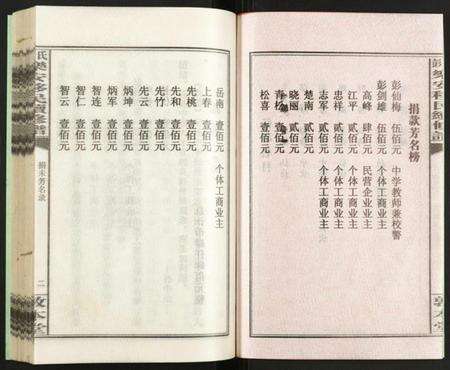 捐款芳名榜
彭仙梅 伍佰元 中学教师兼校警
彭剑雄 伍佰元 个体工商业主
高峰 肆佰元 民营企业业主
江平 贰佰元 个体工商业主
忠祥 贰佰元 个体工商业主
志军 贰佰元 个体工商业主
楚南 贰佰元
晓丽 贰佰元
青松 壹佰元
松喜 壹佰元
岳南 壹佰元 个体工商业主
上春 壹佰元
先桃 壹佰元
先和 壹佰元
先竹 壹佰元
先云 壹佰元
炳坤 壹佰元
炳军 壹佰元
智连 壹佰元
智仁 壹佰元
智云 壹佰元
二
敦本堂